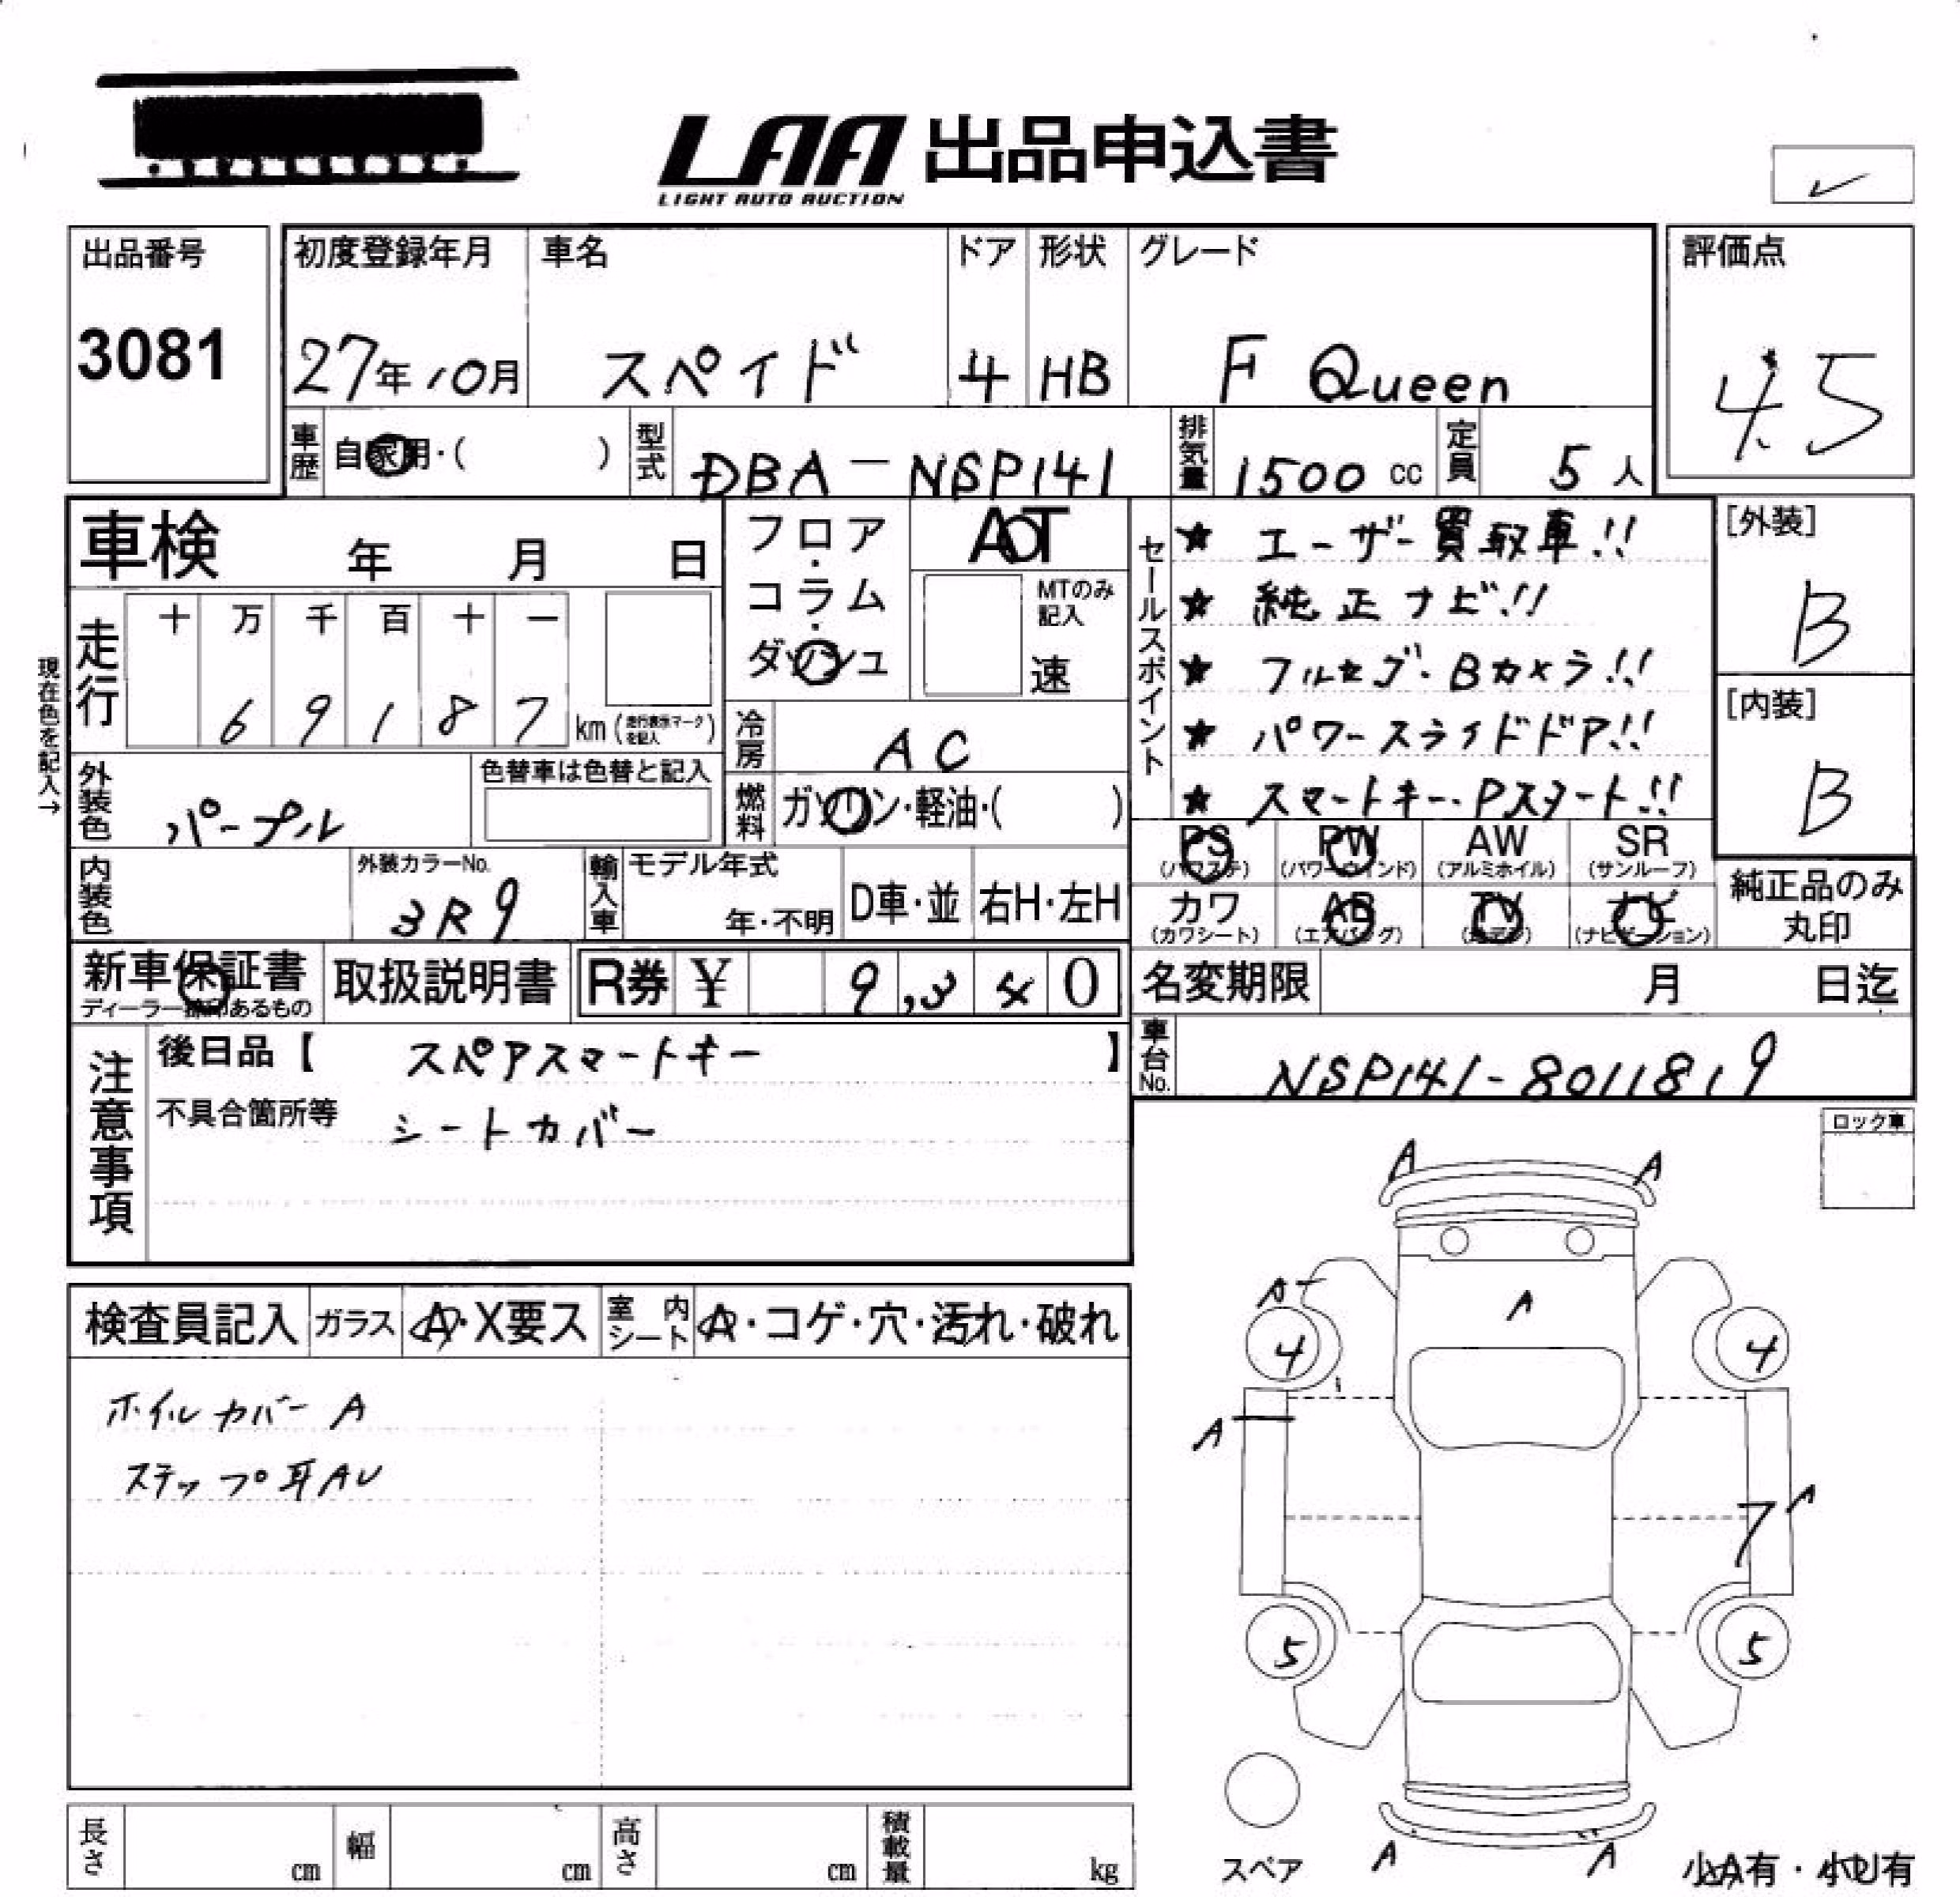 LAA 出品申込書
LIGHT AUTO AUCTION
✓
出品番号
3081
初度登録年月
27年10月
車名
スペイド
ドア
4
形状
HB
グレード
F Queen
評価点
4.5
車歴
自家用・( )
型式
DBA-NSP141
排気量
1500 cc
定員
5 人
車検 年 月 日
フロア・コラム・ダッシュ
AT
MTのみ記入
速
セールスポイント
★ エーザー買取車!!
★ 純正ナビ!!
★ フルセグ・Bカメラ!!
★ パワースライドドア!!
★ スマートキー・Pスタート!!
[外装]
B
[内装]
B
現在色を記入→
走行
十 万 千 百 十 一
6 9 1 8 7 km (走行表示マークを記入)
冷房
AC
外装色
パープル
色替車は色替と記入
燃料
ガソリン・軽油・( )
PS (パワステ)
PW (パワーウィンド)
AW (アルミホイル)
SR (サンルーフ)
カワ (カワシート)
AB (エアバッグ)
TV (地デジ)
ナビ (ナビゲーション)
純正品のみ丸印
内装色
外装カラーNo.
3R9
輸入車
モデル年式
年・不明
D車・並
右H・左H
新車保証書
ディーラー捺印あるもの
取扱説明書
R券 ¥ 9,340
名変期限 月 日迄
車台No.
NSP141-8011819
注意事項
後日品【 スペアスマートキー 】
不具合箇所等 シートカバー
ロック車
検査員記入
ガラス A・X要ス
室内シート A・コゲ・穴・汚れ・破れ
ホイルカバー A
ステップ耳AU
A A
A A
4 4
A
7 A
5 5
スペア
A A
小A有・小U有
長さ cm
幅 cm
高さ cm
積載量 kg